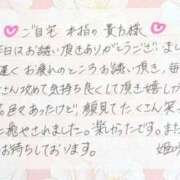 ご自宅 本指の貴方様
日はお誘い頂きありがとうございまし
遅くお疲れのところお誘い頂き、毎
さん攻めて気持ち良くして頂き嬉し
色々あったけど、顔見てたくさん笑
に癒やされました。楽しかったです。
お待ちしております。